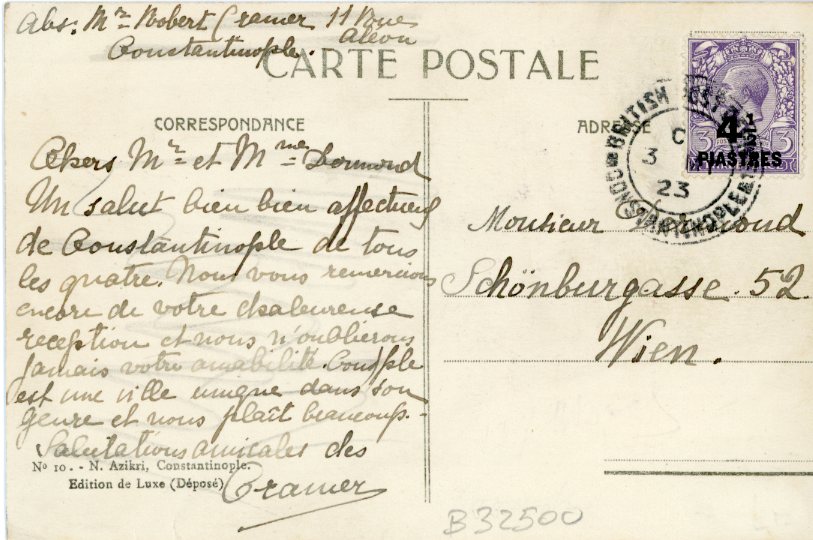 Abs: Mr Robert Cramer 11 Roue
Aleon
Constantinople.
CARTE POSTALE
CORRESPONDANCE
Chers Mr et Mme Dormond
Un salut bien bien affectueux
de Constantinople de tous
les quatre. Nous vous remercions
encore de votre chaleureuse
reception et nous n'oublierons
jamais votre amabilité. Constple
est une ville unique dans son
genre et nous plaît beaucoup.-
Salutations amicales des
Cramer
No 10. - N. Azikri, Constantinople.
Edition de Luxe (Déposé)
ADRESSE
BRITISH POST
CONSTANTINOPLE
C
3
23
4 1/2
3 3
PIASTRES
Monsieur Dormond
Schönburgasse. 52.
Wien.
B32500